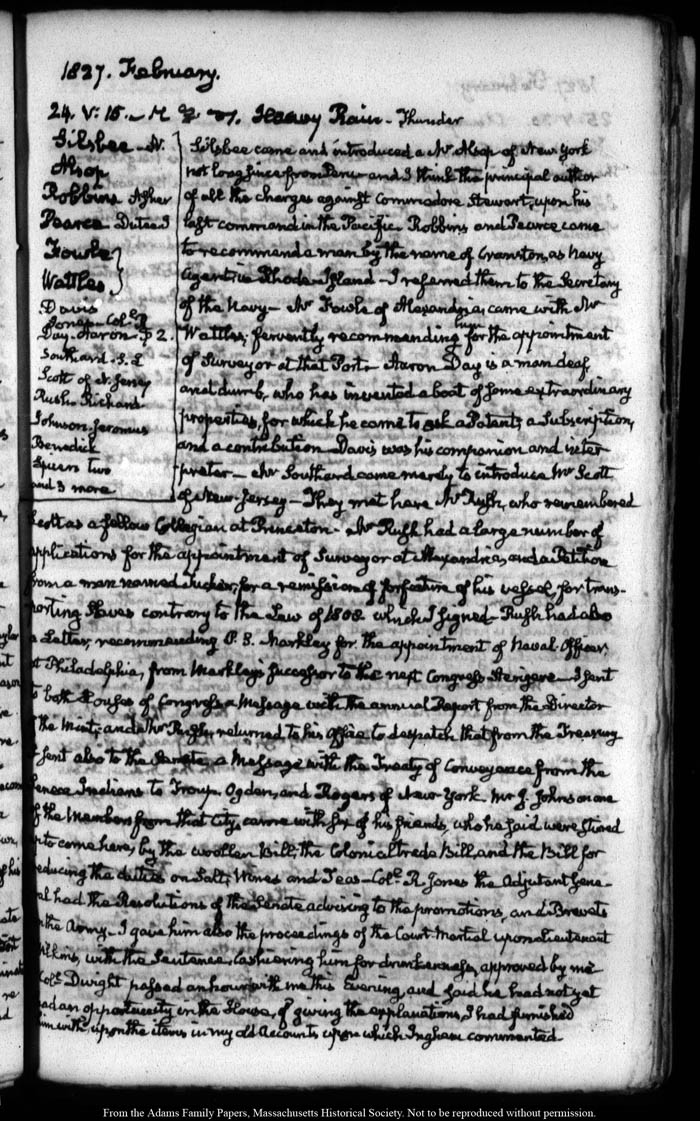 1827. February.
24. V: 15. Heavy Rain - Thunder
Silsbee - N.
Alsop
Robbins Asher
Pearce Dutee J
Fowle
Wattles
Davis
Jones - Col. R
Day. Aaron. P 2.
Southard. S. L
Scott of N. Jersey
Rush. Richard
Johnson Jeromus
Benedick
Spicer two
and 3 more
Silsbee came and introduced a Mr Alsop of New York
not long since from Peru and I think the principal author
of all the charges against Commodore Stewart, upon his
last command in the Pacific. Robbins and Pearce came
to recommend a man by the name of Cranston, as Navy
Agent in Rhode-Island - I referred them to the Secretary
of the Navy - Mr Fowle of Alexandria, came with Mr
Wattles; fervently recommending him for the appointment
of Surveyor at that Port - Aaron Day is a man deaf,
and dumb, who has invented a boat of some extraordinary
properties, for which he came to ask a Patent, a Subscription,
and a contribution - Davis was his companion and inter-
preter - Mr Southard came merely to introduce Mr Scott
of New-Jersey - They met here Mr Rush, who remembered
Scott as a fellow Collegian at Princeton. Mr Rush had a large number of
applications for the appointment of Surveyor at Alexandria, and a Petition
from a man named Tucker, for a remission of forfeiture of his vessel, for trans-
porting Slaves contrary to the Law of 1808 which I signed - Rush had also
a Letter, recommending P. S. Markley for the appointment of Naval Officer
at Philadelphia, from Markley's successor to the next Congress Sterigere - I sent
to both Houses of Congress a Message with the annual Report from the Director
of the Mint; and Mr Rush, returned to his Office to despatch that from the Treasury
I sent also to the Senate, a Message with the Treaty of Conveyance from the
Seneca Indians to Troup, Ogden, and Rogers of New York. Mr J. Johnson one
of the Members from that City, came with six of his friends, who he said were
to come here, by the woollen Bill, the Colonial trade Bill, and the Bill for
reducing the duties on Salt, Wines and Teas - Col. R. Jones the Adjutant Gene-
ral had the Resolutions of the Senate advising to the promotions, and Brevets
in the Army - I gave him also the proceedings of the Court Martial upon Lieutenant
with the Sentence, Cashiering him for drunkenness, approved by me
Col. Dwight passed an hour with me this Evening, and said he had not yet
had an opportunity in the House, of giving the explanations, I had furnished
him with, upon the items in my old Accounts upon which Ingham commented.
From the Adams Family Papers, Massachusetts Historical Society. Not to be reproduced without permission.